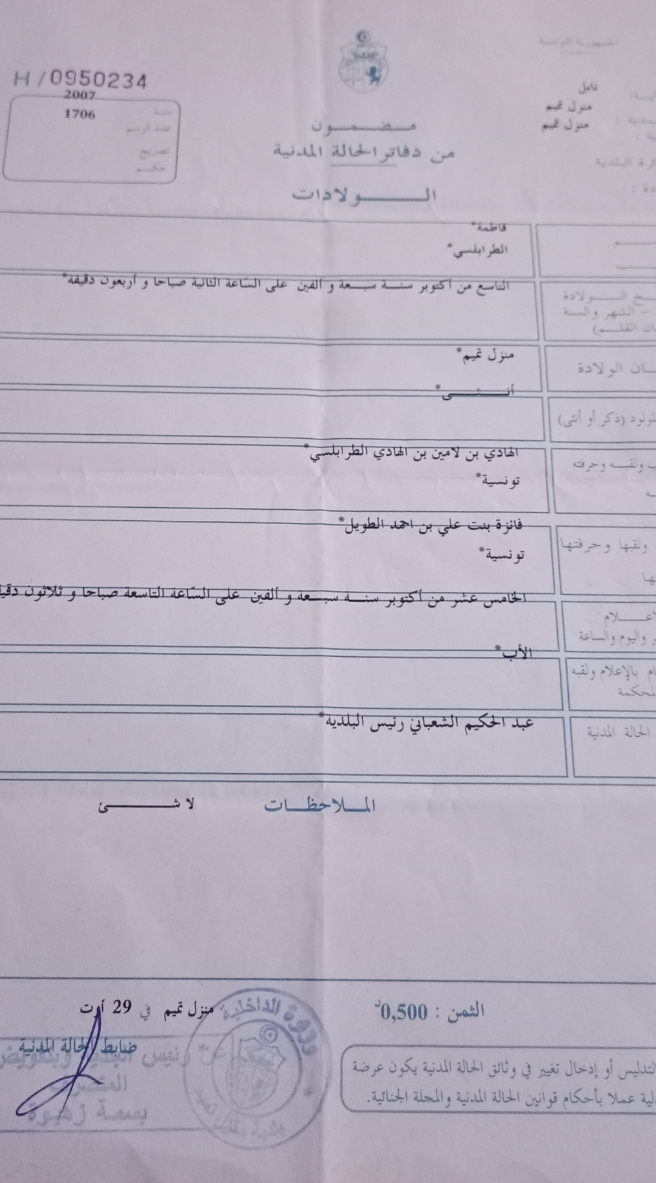 الجمهورية التونسية
H/0950234
2007
سنة
1706
عدد الرسم
تصريح
حكيم
نابل
منزل تميم
منزل تميم
مضمون
من دفاتر الحالة المدنية
الولادات
فاطمة*
الطرابلسي*
التاسع من أكتوبر سنة سبعة و ألفين على الساعة الثانية صباحا و أربعون دقيقة*
الولادة
– الشهر والسنة
منزل تميم*
الولادة
أنثى*
(ذكر أو أنثى)
الهادي بن لامين بن الهادي الطرابلسي*
ولقبه وحرفته
تونسية*
فائزة بنت علي بن احمد الطويل*
ولقبها وحرفتها
تونسية*
الخامس عشر من أكتوبر سنة سبعة و ألفين على الساعة التاسعة صباحا و ثلاثون
واليوم والساعة
الأب*
بالإعلام ولقبه
عبد الحكيم الشعباني رئيس البلدية*
الحالة المدنية
الملاحظات
لا شئ
منزل تميم في 29 أوت
الثمن : 0,500د
ضابط الحالة المدنية
وزارة الداخلية
بلدية منزل تميم
عن رئيس البلدية وبتفويض
بسمة زهرة
التدليس أو إدخال تغيير في وثائق الحالة المدنية يكون عرضة
عملا بأحكام قوانين الحالة المدنية والمجلة الجنائية.